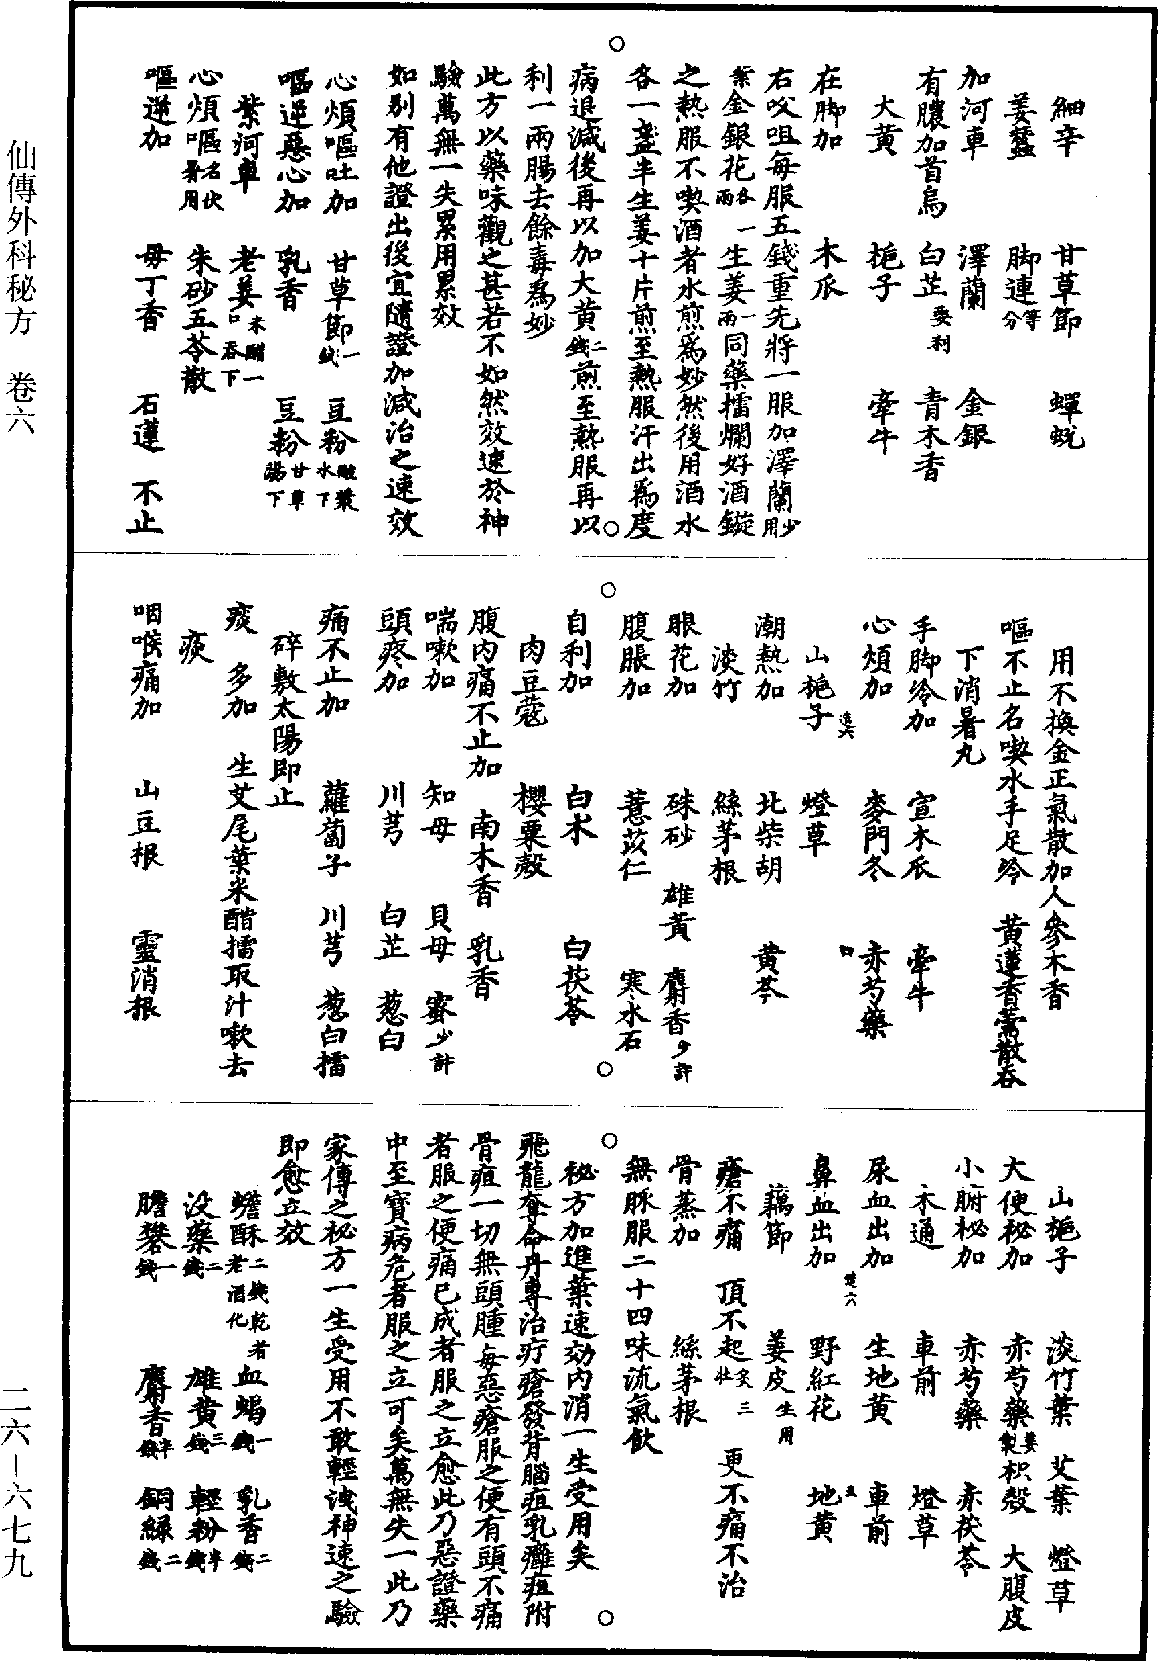 仙傳外科秘方　卷六
二六－六七九
細辛　甘草節　蟬蛻
姜蠶　脚連等分
加河車　澤蘭　金銀
有膿加首烏　白芷要利　青木香
大黃　梔子　牽牛
在脚加　木瓜
右㕮咀每服五錢重先將一服加澤蘭少用
葉金銀花各一兩生姜一兩同藥擂爛好酒鏇
之熱服不喫酒者水煎爲妙然後用酒水
各一盞半生姜十片煎至熱服汗出爲度
病退減後再以加大黃二錢煎至熱服再以
利一兩腸去餘毒爲妙
此方以藥味觀之甚若不如然效速於神
驗萬無一失累用累效
如别有他證出後宜隨證加減治之速效
心煩嘔吐加　甘草節一錢　豆粉酸漿水下
嘔逆惡心加　乳香　豆粉甘草湯下
紫河車　老姜末醋一口吞下
心煩嘔名伏暑用　朱砂五苓散
嘔逆加　母丁香　石蓮　不止
用不換金正氣散加人參木香
嘔不止名喫水手足冷　黃連香薷散吞
下消暑丸
手脚冷加　宣木瓜　牽牛
心煩加　麥門冬　赤芍藥
山梔子　燈草
潮熱加　北柴胡　黃芩
淡竹　絲茅根
眼花加　硃砂　雄黃　麝香少許
腹脹加　薏苡仁　寒水石
自利加　白术　白茯苓
肉豆蔻　櫻粟殼
腹內痛不止加　南木香　乳香
喘嗽加　知母　貝母　蜜少許
頭疼加　川芎　白芷　葱白
痛不止加　蘿蔔子　川芎　葱白擂
碎敷太陽即止
痰　多加　生艾尾葉米醋擂取汁嗽去
痰
咽喉痛加　山豆根　靈消根
山梔子　淡竹葉　艾葉　燈草
大便秘加　赤芍藥姜製　枳殼　大腹皮
小腑秘加　赤芍藥　赤茯苓
木通　車前　燈草
尿血出加　生地黃　車前
鼻血出加　野紅花　地黃
藕節　姜皮生用
瘡不痛　頂不起灸三壯　更不痛不治
骨蒸加　絲茅根
無脉服二十四味流氣飲
秘方加進藥速効內消一生受用矣
飛龍奪命丹專治疔瘡發背腦疽乳癰疽附
骨疽一切無頭腫毒惡瘡服之便有頭不痛
者服之便痛已成者服之立愈此乃惡證藥
中至寶病危者服之立可矣萬無失一此乃
家傳之秘方一生受用不敢輕洩神速之驗
即愈立效
蟾酥二錢乾者老酒化　血蝎一錢　乳香二錢
没藥二錢　雄黃三錢　輕粉半錢
膽礬一錢　麝香半錢　銅緑二錢